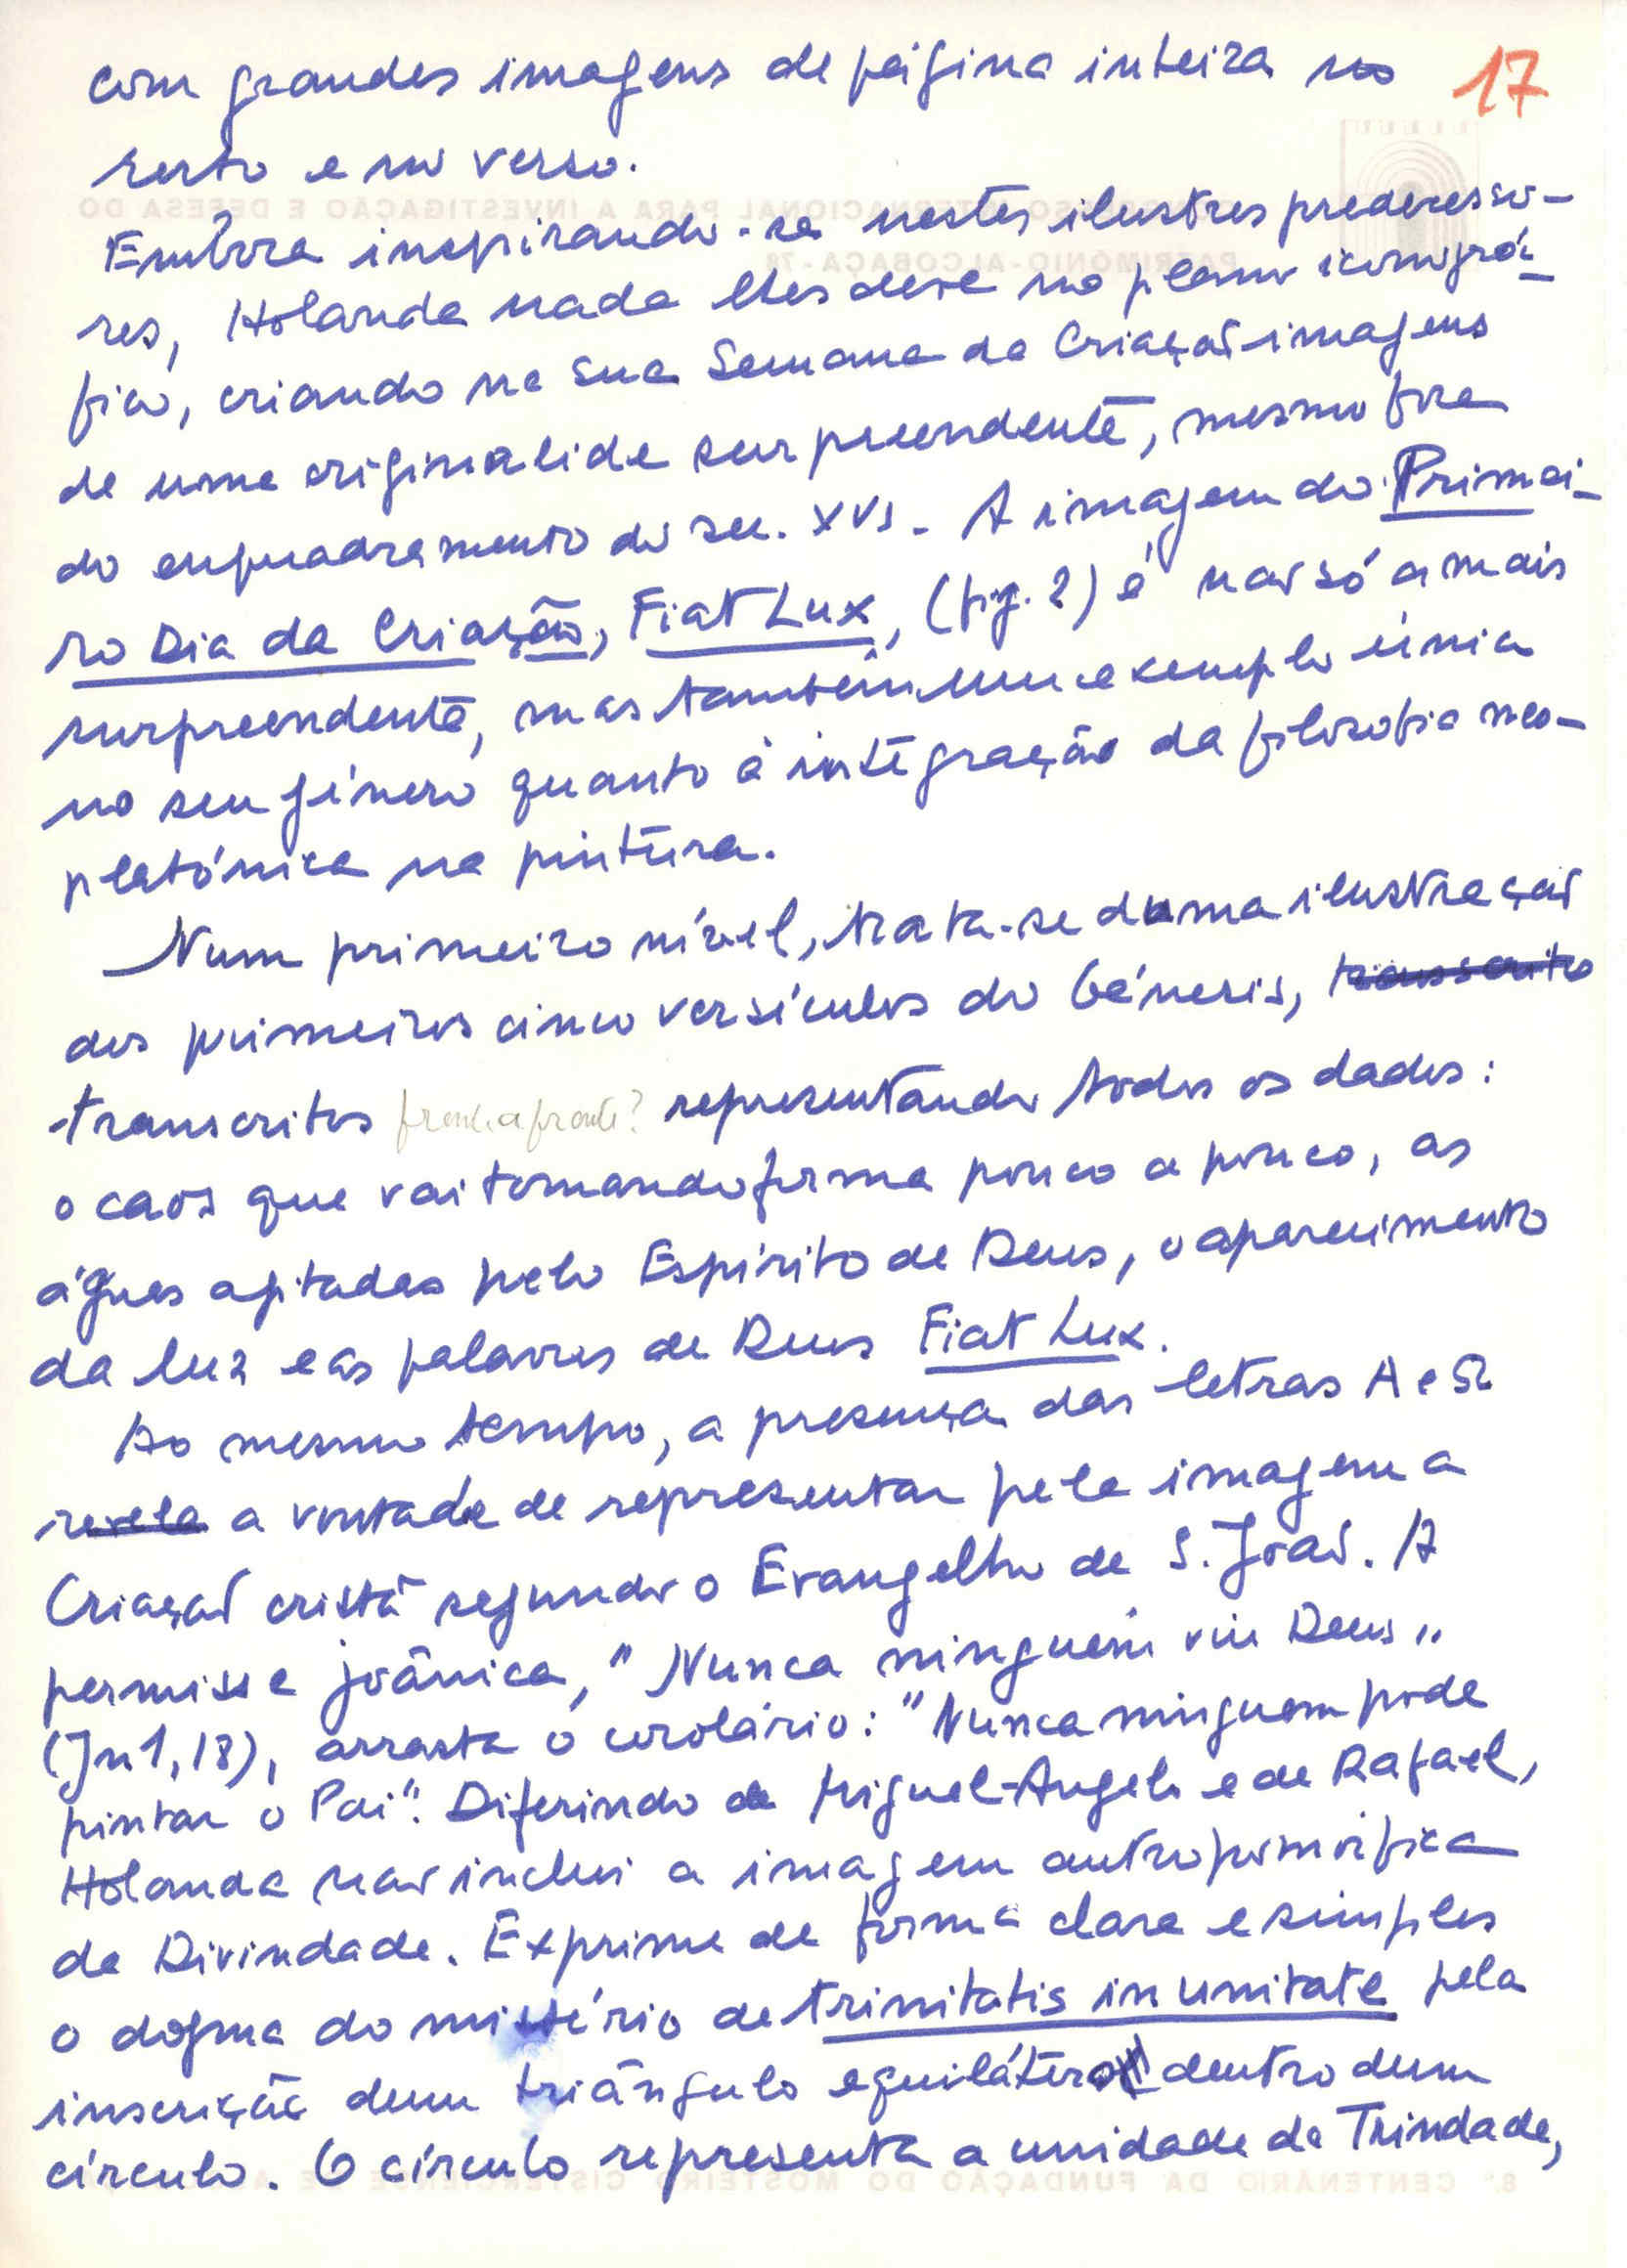 com grandes imagens de página inteira no 17
rerto e no verso.
Embora inspirando-se nestes ilustres predecesso-
res, Holanda nada lhes deve no plano iconográ-
fico, criando na sua Semana da Criação imagens
de uma originalide surpreendente, mesmo fora
do enquadramento do sec. XVI. A imagem do Primei-
ro Dia da Criação, Fiat Lux, (fig. 2) é não só a mais
surpreendente, mas também um exemplo único
no seu género quanto à integração da filosofia neo-
platónica na pintura.
Num primeiro nível, trata-se duma ilustração
dos primeiros cinco versículos do Génesis, transcrito
transcritos frente a fronte? representando todos os dados:
o caos que vai tomando forma pouco a pouco, as
águas agitadas pelo Espírito de Deus, o aparecimento
da luz e as palavras de Deus Fiat Lux.
Ao mesmo tempo, a presença das letras A e Ω
revela a vontade de representar pela imagem a
Criação cristã segundo o Evangelho de S. João. A
permissa joânica, "Nunca ninguém viu Deus"
(Jn 1,18), arrasta o corolário: "Nunca ninguem pode
pintar o Pai". Diferindo de Miguel-Angelo e de Rafael,
Holanda não inclui a imagem antropomórfica
da Divindade. Exprime de forma clara e simples
o dogma do mistério de trinitatis in unitate pela
inscrição dum triângulo equilátero dentro dum
círculo. O círculo representa a unidade da Trindade,
CONGRESSO INTERNACIONAL PARA A INVESTIGAÇÃO E DEFESA DO
PATRIMÓNIO-ALCOBAÇA-78
8.º CENTENÁRIO DA FUNDAÇÃO DO MOSTEIRO CISTERCIENSE DE ALCOBAÇA